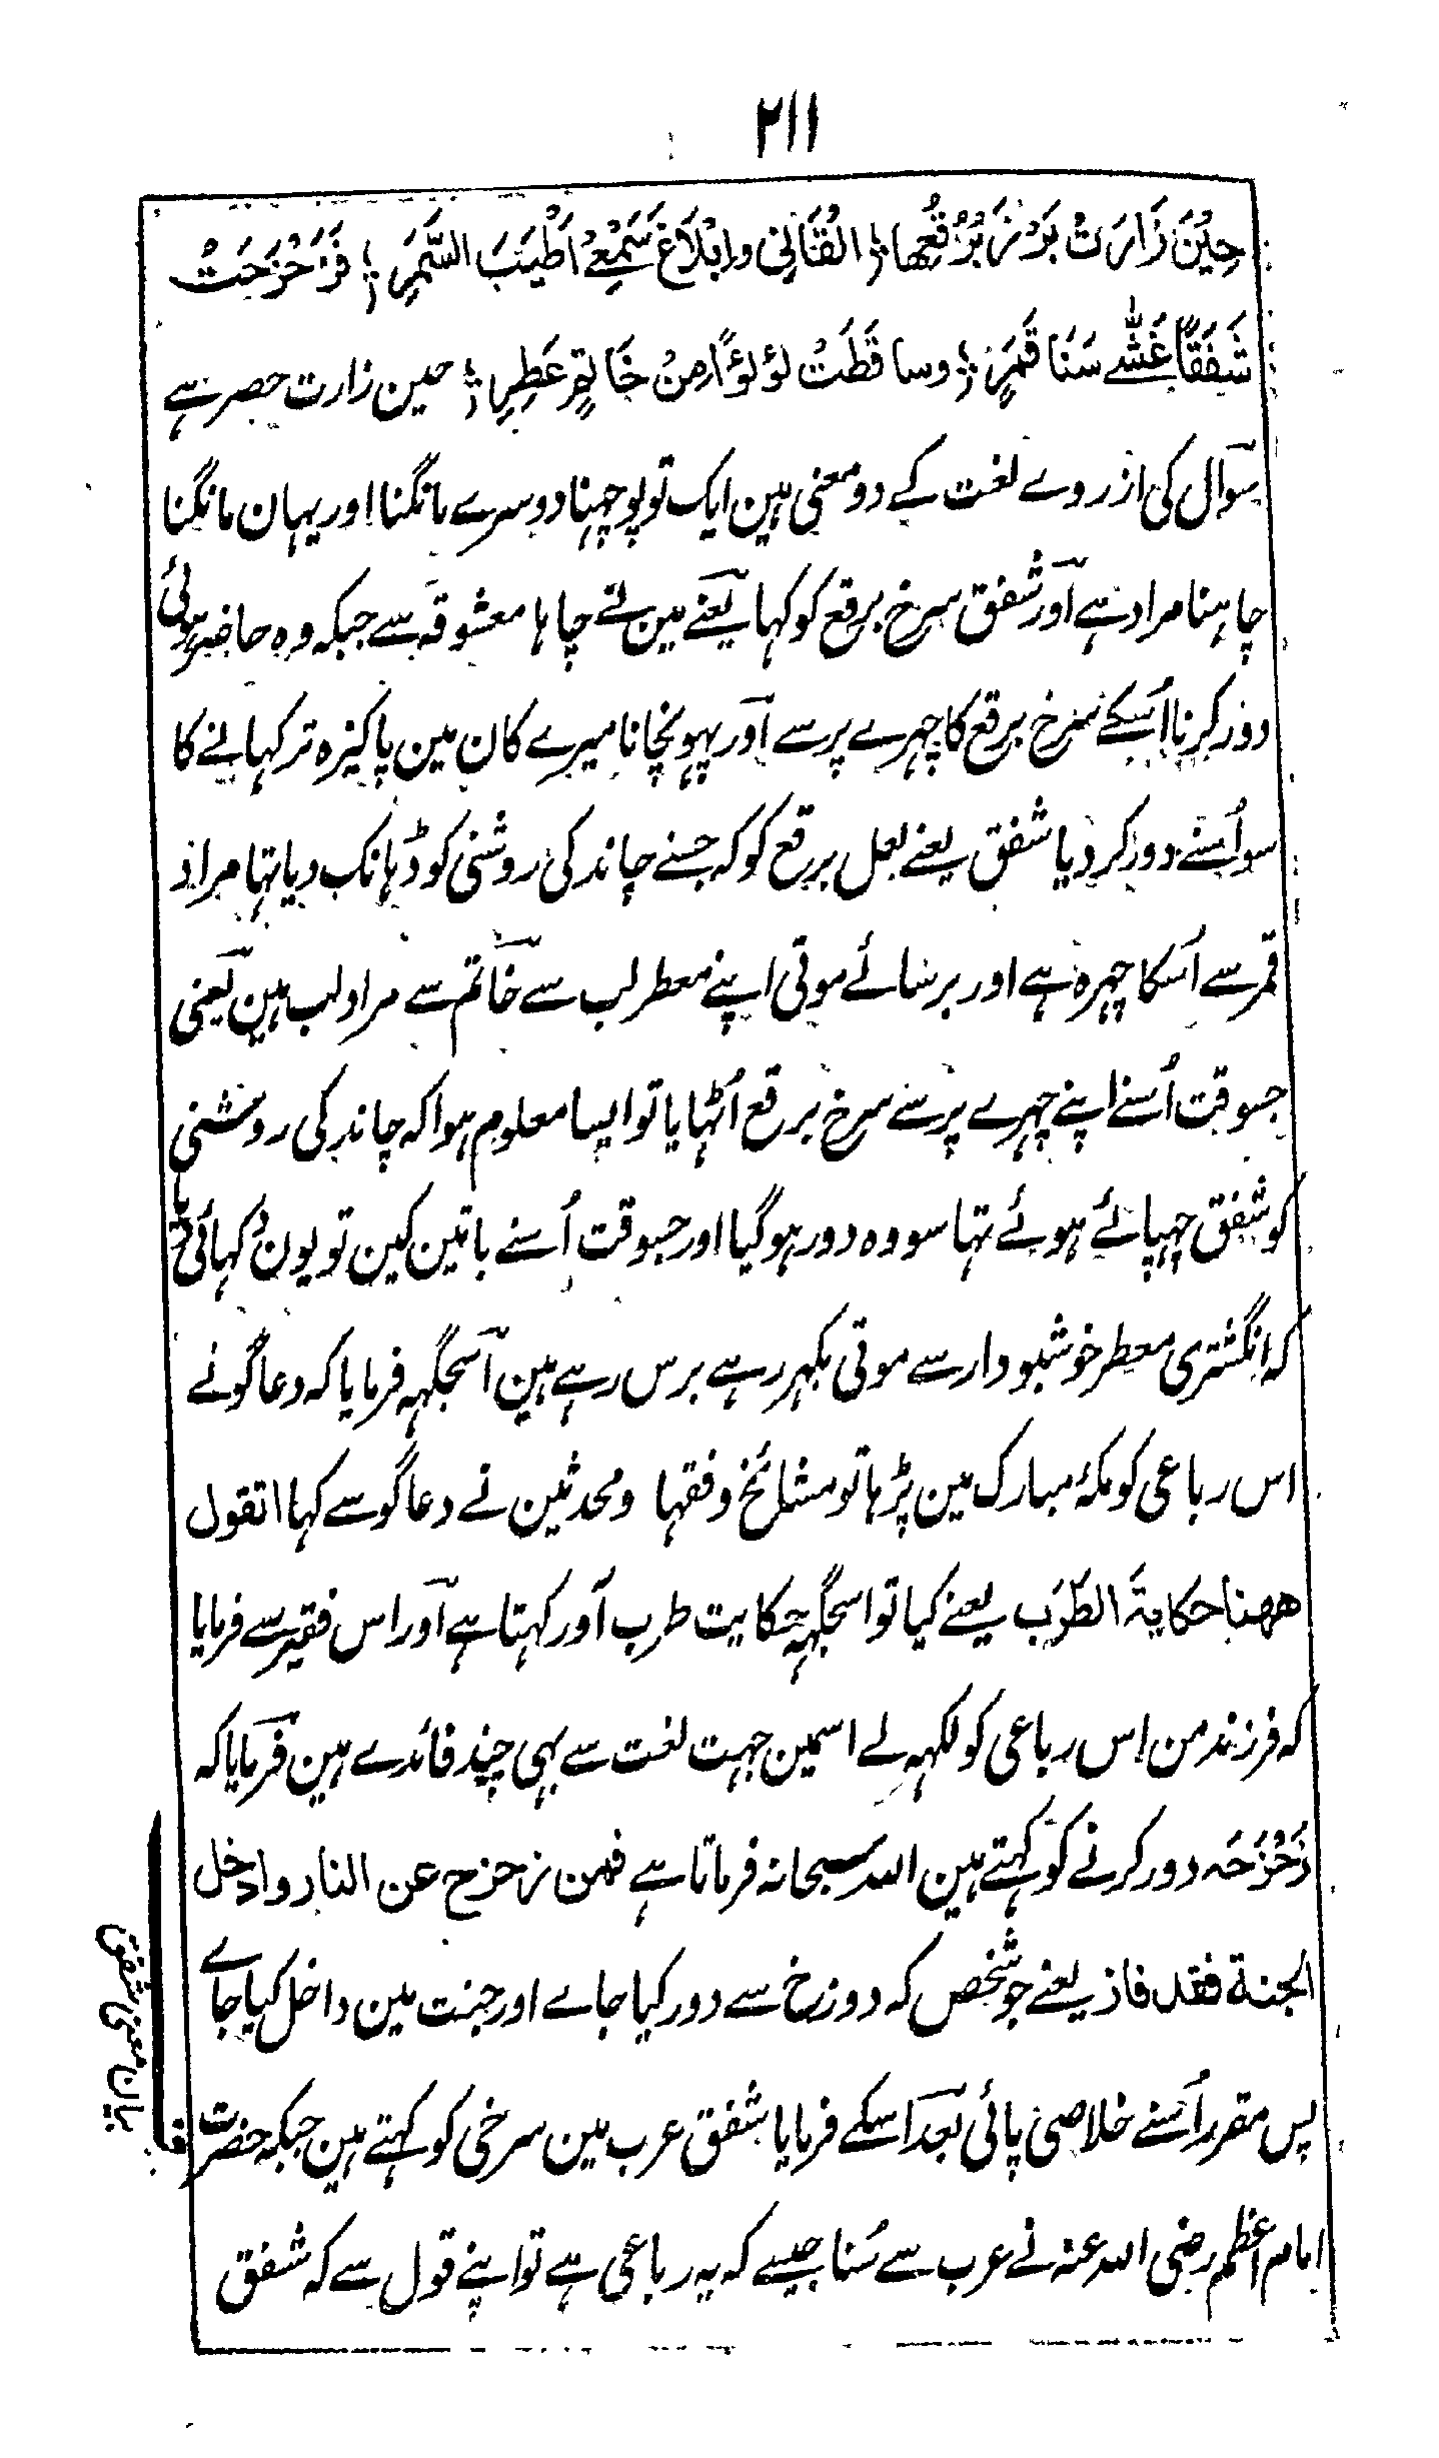 ۲۱۱
حِیْنَ زَارَتْ بَرْنَزَ بُرْقُعِها ؛ الْقُنَانِی وإبْلَاغَ سَمْعِیْ اَطْیَبَ السَّمَرِ ؛ فَزَحْزَحَتْ
شَفَقًا غَشّٰے سَنَا قَمَرٍ ؛ وسا قَطَتْ لؤلوًا مِنْ خَاتِمٍ عَطِرٍ ؛ حین زارت حصر ہے
سوال کی از روے لغت کے دو معنی ہین ایک تو پوچہنا دوسرے مانگنا اور یہان مانگنا
چاہنا مراد ہے اور شفق سرخ برقع کو کہا یعنے مین نے چاہا معشوقہ سے جبکہ وہ حاضر ہوئی
دور کرنا اُسکے سرخ برقع کا چہرے پر سے اور پہونچانا میرے کان مین پاکیزہ تر کہانے کا
سو اُسنے دور کر دیا شفق یعنے لعل برقع کو کہ جسنے چاند کی روشنی کو ڈہانک دیا تہا مراد
قمر سے اُسکا چہرہ ہے اور برسائے موتی اپنے معطر لب سے خاتم سے مراد لب ہین یعنی
جسوقت اُسنے اپنے چہرے پر سے سرخ برقع اُٹہایا تو ایسا معلوم ہوا کہ چاند کی روشنی
کو شفق چہپائے ہوئے تہا سو وہ دور ہو گیا اور جسوقت اُسنے باتین کین تو یون کہائی
کہ انگشتری معطر خوشبودار سے موتی بکہر رہے برس رہے ہین اسجگہہ فرمایا کہ دعاگو نے
اس رباعی کو مکۂ مبارک مین پڑہا تو مشائخ و فقہا و محدثین نے دعاگو سے کہا اتقول
ههنا حکایة الطَرَب یعنے کیا تو اسجگہہ حکایت طرب آور کہتا ہے اور اس فقیر سے فرمایا
کہ فرزند من اس رباعی کو لکہہ لے اسمین جہت لغت سے بہی چند فائدے ہین فرمایا کہ
زَحْزَحَہ دور کرنے کو کہتے ہین اللہ سبحانہ فرماتا ہے فمن زحزح عن النار وادخل
الجنة فقد فاز یعنے جو شخص کہ دوزخ سے دور کیا جاے اور جنت مین داخل کیا جاے
پس مقرر اُسنے خلاصی پائی بعد اسکے فرمایا شفق عرب مین سرخی کو کہتے ہین جبکہ حضرت
امام اعظم رضی اللہ عنہ نے عرب سے سُنا جیسے کہ یہ رباعی ہے تو اپنے قول سے کہ شفق
بیان معنی شفق